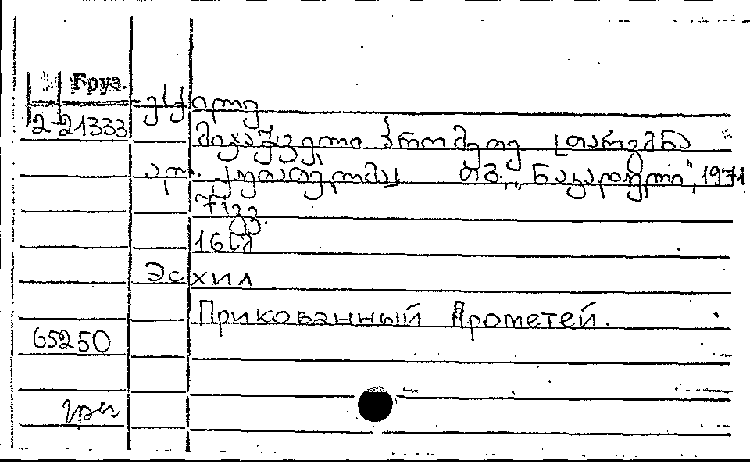 Груз.
ესქილე
2-21333 მიჯაჭვული პრომეთე [თარგმნა
თბ., „ნაკადული", 1971
71 გვ.
16 სმ
Эсхил
Прикованный Прометей.
65250